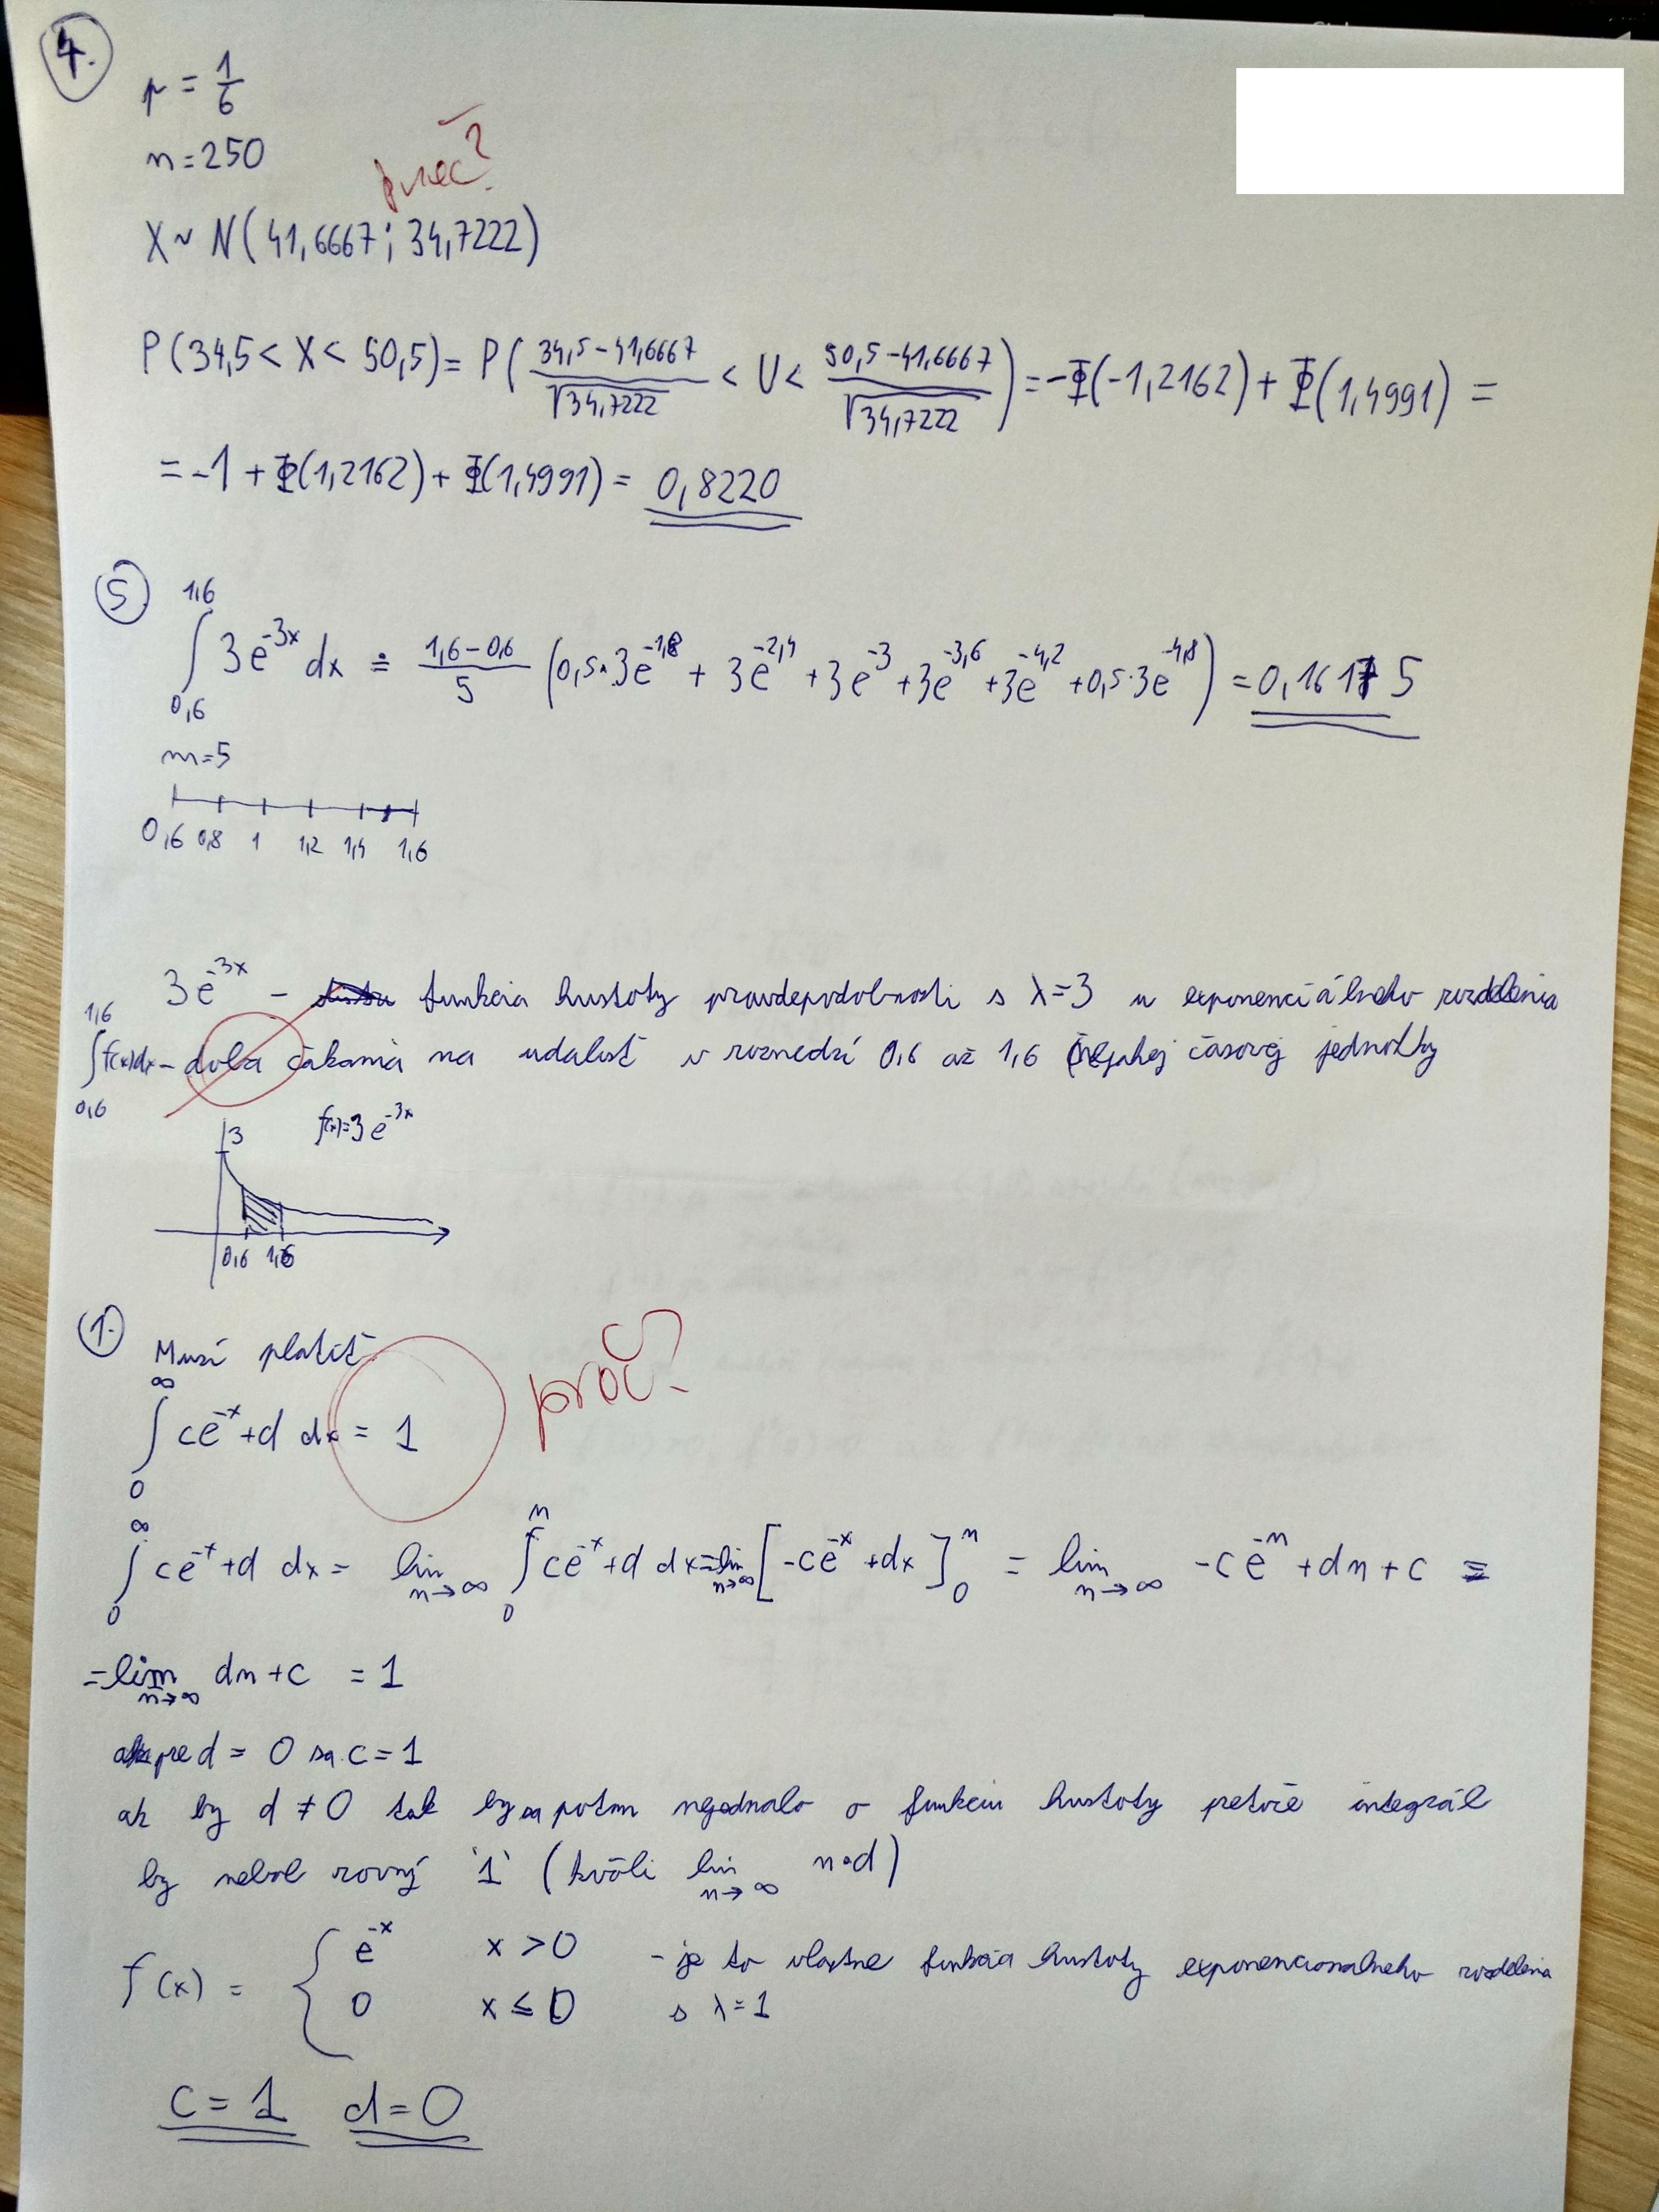 4.
p = 1/6
n = 250
proč?
X ~ N(41,6667; 34,7222)
P(34,5 < X < 50,5) = P( (34,5 - 41,6667)/√34,7222 < U < (50,5 - 41,6667)/√34,7222 ) = -Φ(-1,2162) + Φ(1,4991) =
= -1 + Φ(1,2162) + Φ(1,4991) = 0,8220
5
∫_{0,6}^{1,6} 3e^{-3x} dx ≐ (1,6 - 0,6)/5 (0,5·3e^{-1,8} + 3e^{-2,4} + 3e^{-3} + 3e^{-3,6} + 3e^{-4,2} + 0,5·3e^{-4,8}) = 0,1615
m = 5
0,6 0,8 1 1,2 1,4 1,6
3e^{-3x} - funkcia hustoty pravdepodobnosti s λ=3 u exponenciálneho rozdelenia
∫_{0,6}^{1,6} f(x)dx - doba čakania na udalosť v rozmedzí 0,6 až 1,6 časovej jednotky
3 f(x)=3e^{-3x}
0,6 1,6
1.
Musí platiť
∫_0^∞ ce^{-x} + d dx = 1 proč?
∫_0^∞ ce^{-x} + d dx = lim_{n→∞} ∫_0^n ce^{-x} + d dx = lim_{n→∞} [-ce^{-x} + dx]_0^n = lim_{n→∞} -ce^{-n} + dn + c =
= lim_{n→∞} dn + c = 1
pre d = 0 sa c = 1
ak by d ≠ 0 tak by sa potom nejednalo o funkciu hustoty pretože integrál
by nebol rovný '1' (kvôli lim_{n→∞} n·d)
f(x) = { e^{-x} x > 0 - je to vlastne funkcia hustoty exponencionalneho rozdelenia
0 x ≤ 0 s λ = 1
c = 1 d = 0